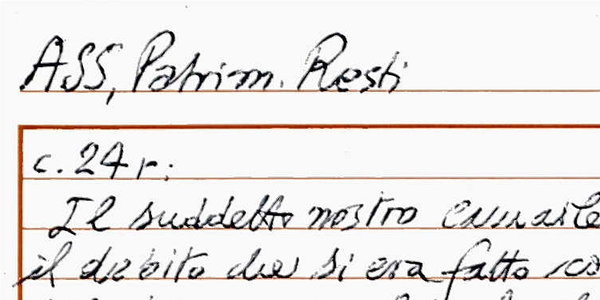 ASS, Patrim. Resti
c. 24 r:
Il suddetto nostro
il debito che si era fatto